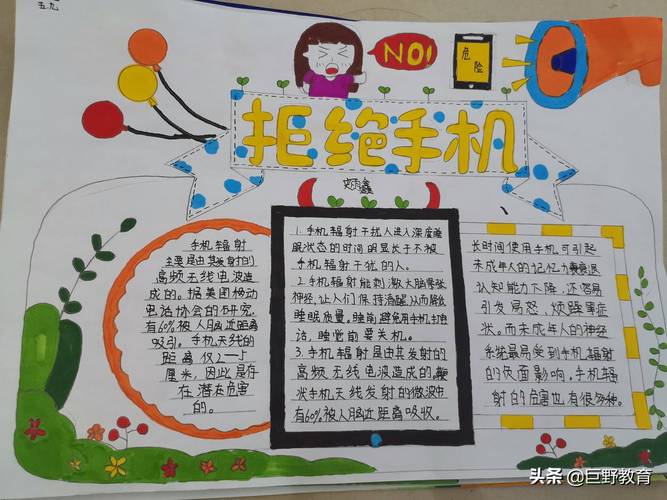 五九
NO!
危
险
拒绝手机
手机辐射
主要是由其发射的
高频无线电波造
成的。据美国移动
电话协会的研究,
有60%被人脑近距离
吸引。手机天线的
距离仅2——5
厘米,因此是存
在潜在危害
的。
1.手机辐射干扰人进入深度睡
眠状态的时间明显长于不被
手机辐射干扰的人。
2.手机辐射能刺激大脑紧张
神经,让人们保持清醒,从而降低
睡眠质量。睡前避免用手机打电
话,睡觉前要关机。
3.手机辐射是由其发射的
高频无线电波造成的。鞭
状手机天线发射的微波中
有60%被人脑近距离吸收。
长时间使用手机可引起
未成年人的记忆力衰退
认知能力下降,还容易
引发局怒、烦躁等症
状。而未成年人的神经
系统最易受到手机辐射
的负面影响。手机辐
射的危害也有很多种。
头条 @巨野教育